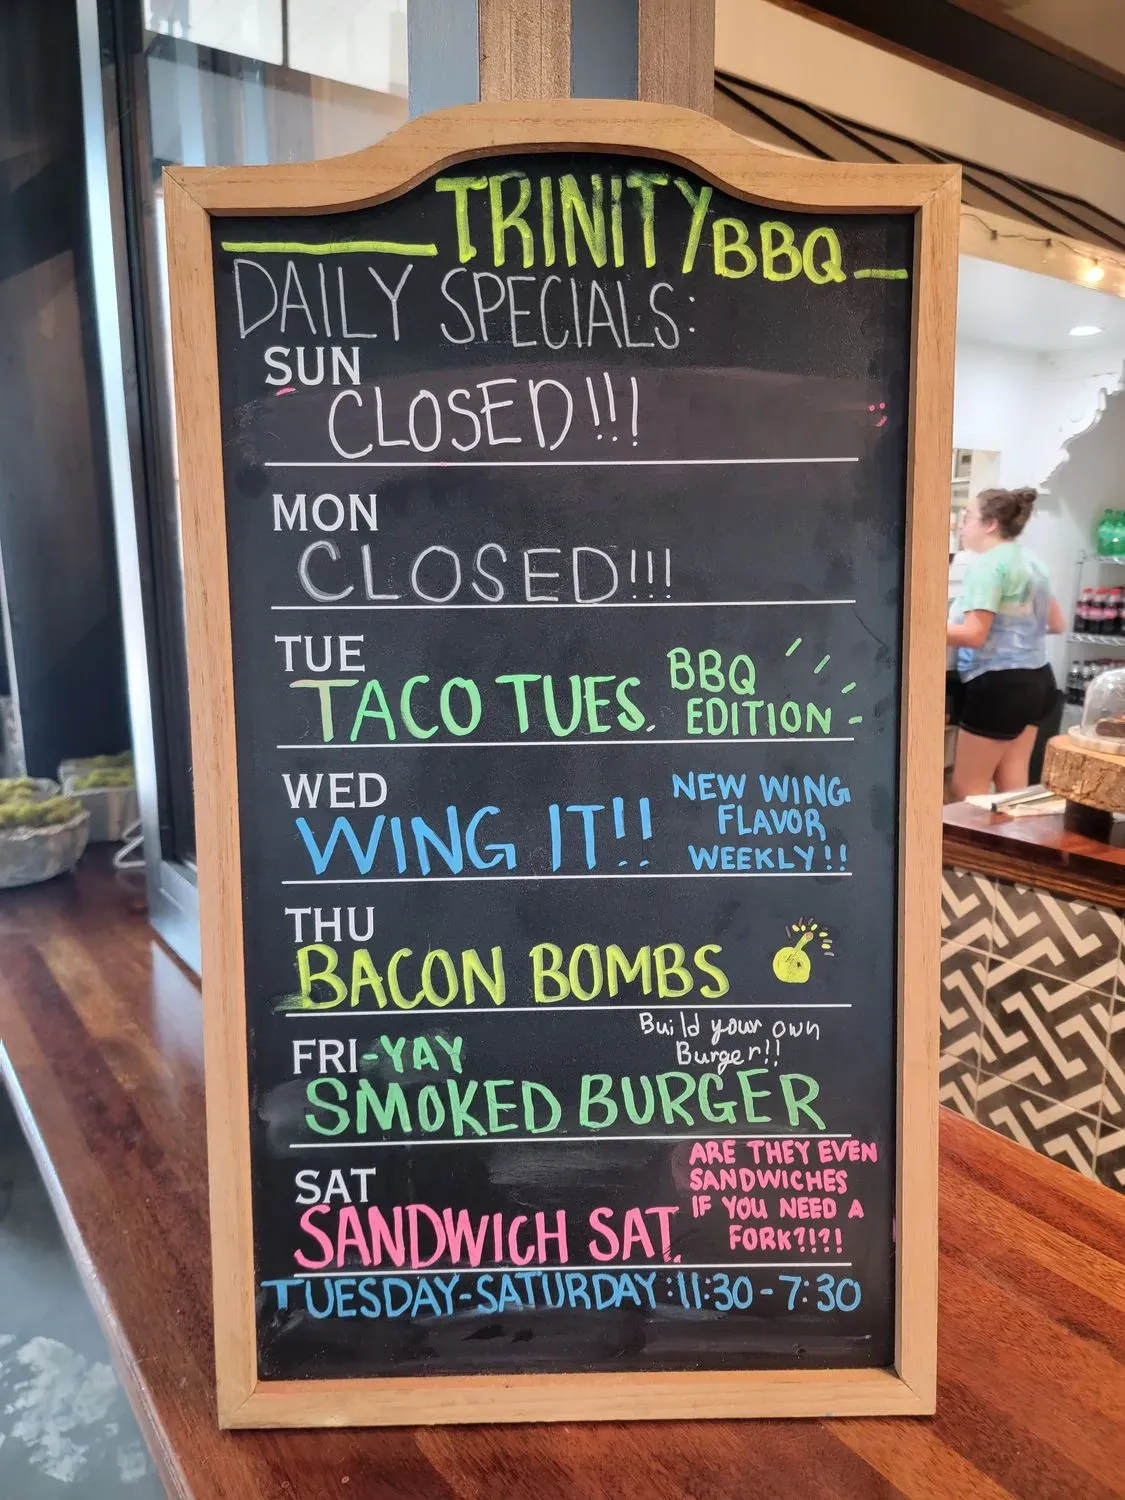 TRINITY BBQ
DAILY SPECIALS:
SUN
CLOSED!!!
MON
CLOSED!!!
TUE
TACO TUES. BBQ
EDITION
WED
WING IT!! NEW WING
FLAVOR
WEEKLY!!
THU
BACON BOMBS
FRI-YAY
Build your own
Burger!!
SMOKED BURGER
SAT
SANDWICH SAT.
ARE THEY EVEN
SANDWICHES
IF YOU NEED A
FORK?!?!
TUESDAY-SATURDAY:11:30-7:30